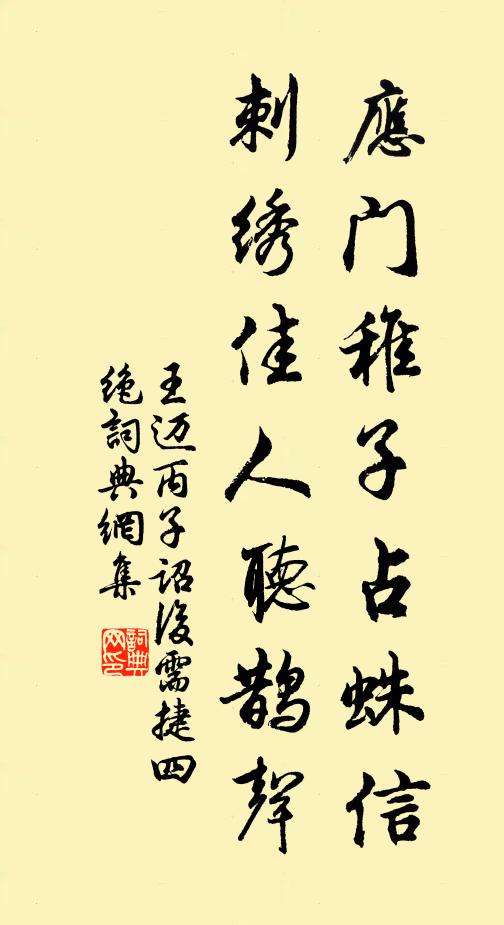 應门稚子占蛛信
刺绣佳人聽鹊聲
王迈丙子詔後需捷四
绝詞典網集
詞典网印